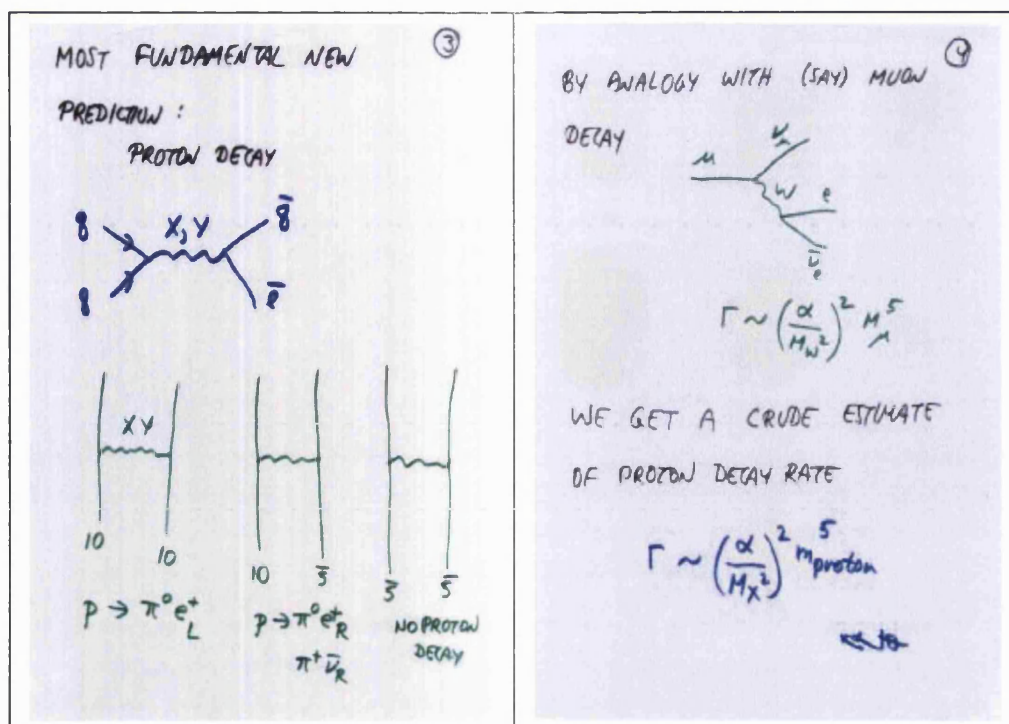 ③
MOST FUNDAMENTAL NEW
PREDICTION :
PROTON DECAY
q X, Y q̄
q l̄
XY
10 10 10 5̄ 5̄ 5̄
p → π⁰ e⁺_L p → π⁰ e⁺_R NO PROTON
π⁺ ν̄_R DECAY
④
BY ANALOGY WITH (SAY) MUON
DECAY
μ ν_μ
W e
ν̄_e
Γ ~ (α/M_W²)² M_μ⁵
WE GET A CRUDE ESTIMATE
OF PROTON DECAY RATE
Γ ~ (α/M_X²)² m_proton⁵